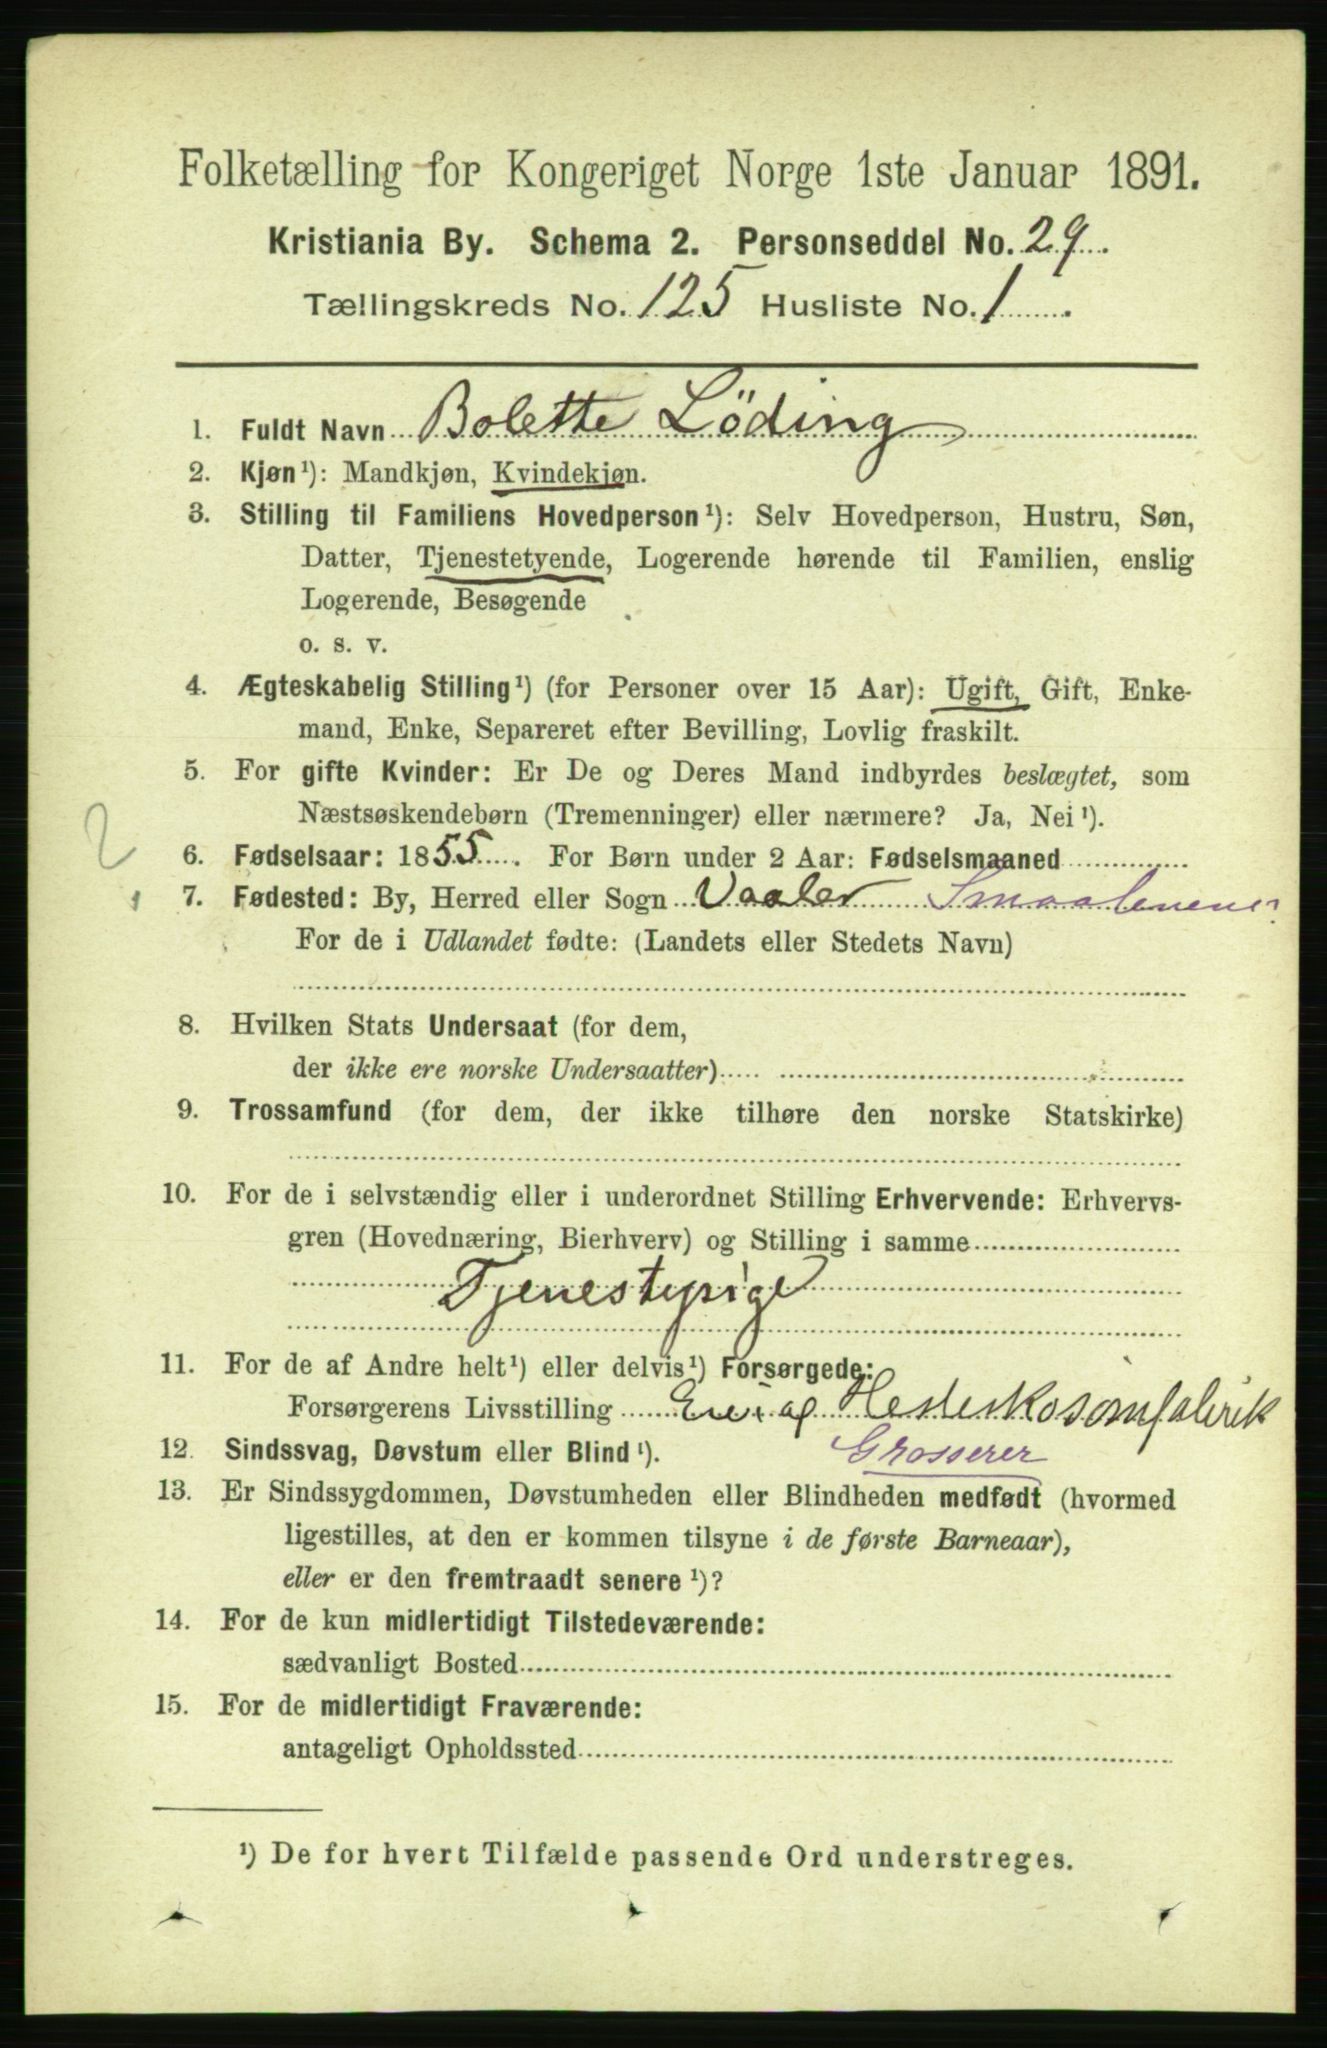 Folketælling for Kongeriget Norge 1ste Januar 1891.
Kristiania By. Schema 2. Personseddel No. 29.
Tællingskreds No. 125 Husliste No. 1.
1. Fuldt Navn Bolette Löding
2. Kjøn¹): Mandkjøn, Kvindekjøn.
3. Stilling til Familiens Hovedperson¹): Selv Hovedperson, Hustru, Søn,
Datter, Tjenestetyende, Logerende hørende til Familien, enslig
Logerende, Besøgende
o. s. v.
4. Ægteskabelig Stilling¹) (for Personer over 15 Aar): Ugift, Gift, Enke-
mand, Enke, Separeret efter Bevilling, Lovlig fraskilt.
5. For gifte Kvinder: Er De og Deres Mand indbyrdes beslægtet, som
Næstsøskendebørn (Tremenninger) eller nærmere? Ja, Nei¹).
2
6. Fødselsaar: 1855. For Børn under 2 Aar: Fødselsmaaned
7. Fødested: By, Herred eller Sogn Vaaler Smaalenene
For de i Udlandet fødte: (Landets eller Stedets Navn)
8. Hvilken Stats Undersaat (for dem,
der ikke ere norske Undersaatter)
9. Trossamfund (for dem, der ikke tilhøre den norske Statskirke)
10. For de i selvstændig eller i underordnet Stilling Erhvervende: Erhvervs-
gren (Hovednæring, Bierhverv) og Stilling i samme
Tjenestypige
11. For de af Andre helt¹) eller delvis¹) Forsørgede:
Forsørgerens Livsstilling Eier af Hesteskosömfabrik
12. Sindssvag, Døvstum eller Blind¹). Grosserer
13. Er Sindssygdommen, Døvstumheden eller Blindheden medfødt (hvormed
ligestilles, at den er kommen tilsyne i de første Barneaar),
eller er den fremtraadt senere¹)?
14. For de kun midlertidigt Tilstedeværende:
sædvanligt Bosted
15. For de midlertidigt Fraværende:
antageligt Opholdssted
¹) De for hvert Tilfælde passende Ord understreges.